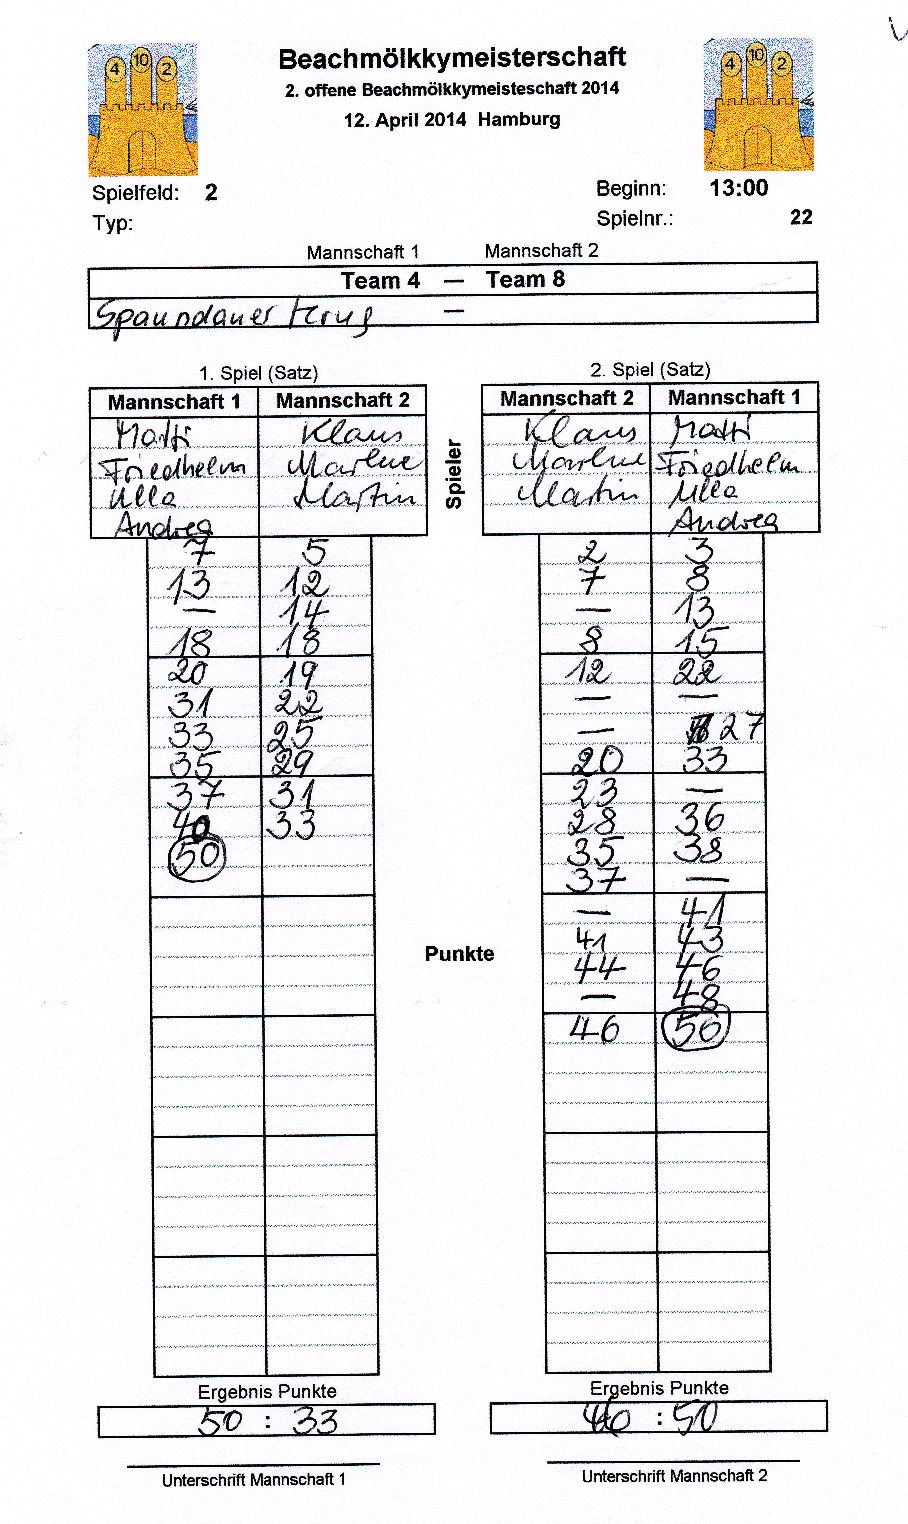 4 10 2
Beachmölkkymeisterschaft
4 10 2
2. offene Beachmölkkymeisteschaft 2014
12. April 2014 Hamburg
Spielfeld: 2
Beginn: 13:00
Typ:
Spielnr.: 22
Mannschaft 1 Mannschaft 2
Team 4 — Team 8
Spaundauer Krug —
1. Spiel (Satz)
Mannschaft 1 Mannschaft 2
Matti Klaus
Friedhelm Marlene
Ulla Martin
Andrea
7 5
13 12
— 14
18 18
20 19
31 22
33 25
35 29
37 31
40 33
50
Ergebnis Punkte
50 : 33
Unterschrift Mannschaft 1
Spieler
Punkte
2. Spiel (Satz)
Mannschaft 2 Mannschaft 1
Klaus Matti
Marlene Friedhelm
Martin Ulla
Andrea
2 3
7 8
— 13
8 15
12 22
— —
— 27
20 33
23 —
28 36
35 38
37 —
— 41
41 43
44 46
— 48
46 50
Ergebnis Punkte
46 : 50
Unterschrift Mannschaft 2